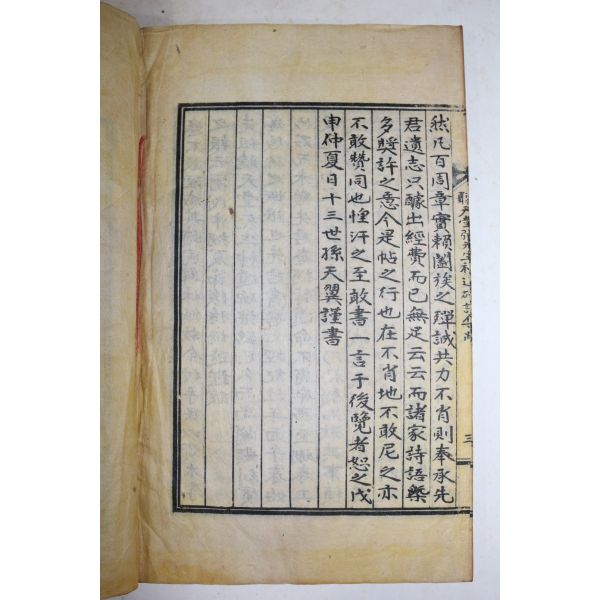 然凡百周章實賴闔族之殫誠共力不肖則奉承先
君遺志只醵出經費而已無足云云而諸家詩語槩
多奬許之意今是帖之行也在不肖地不敢尼之亦
不敢贊同也惶汗之至敢書一言于後覽者恕之戊
申仲夏日十三世孫天翼謹書
三